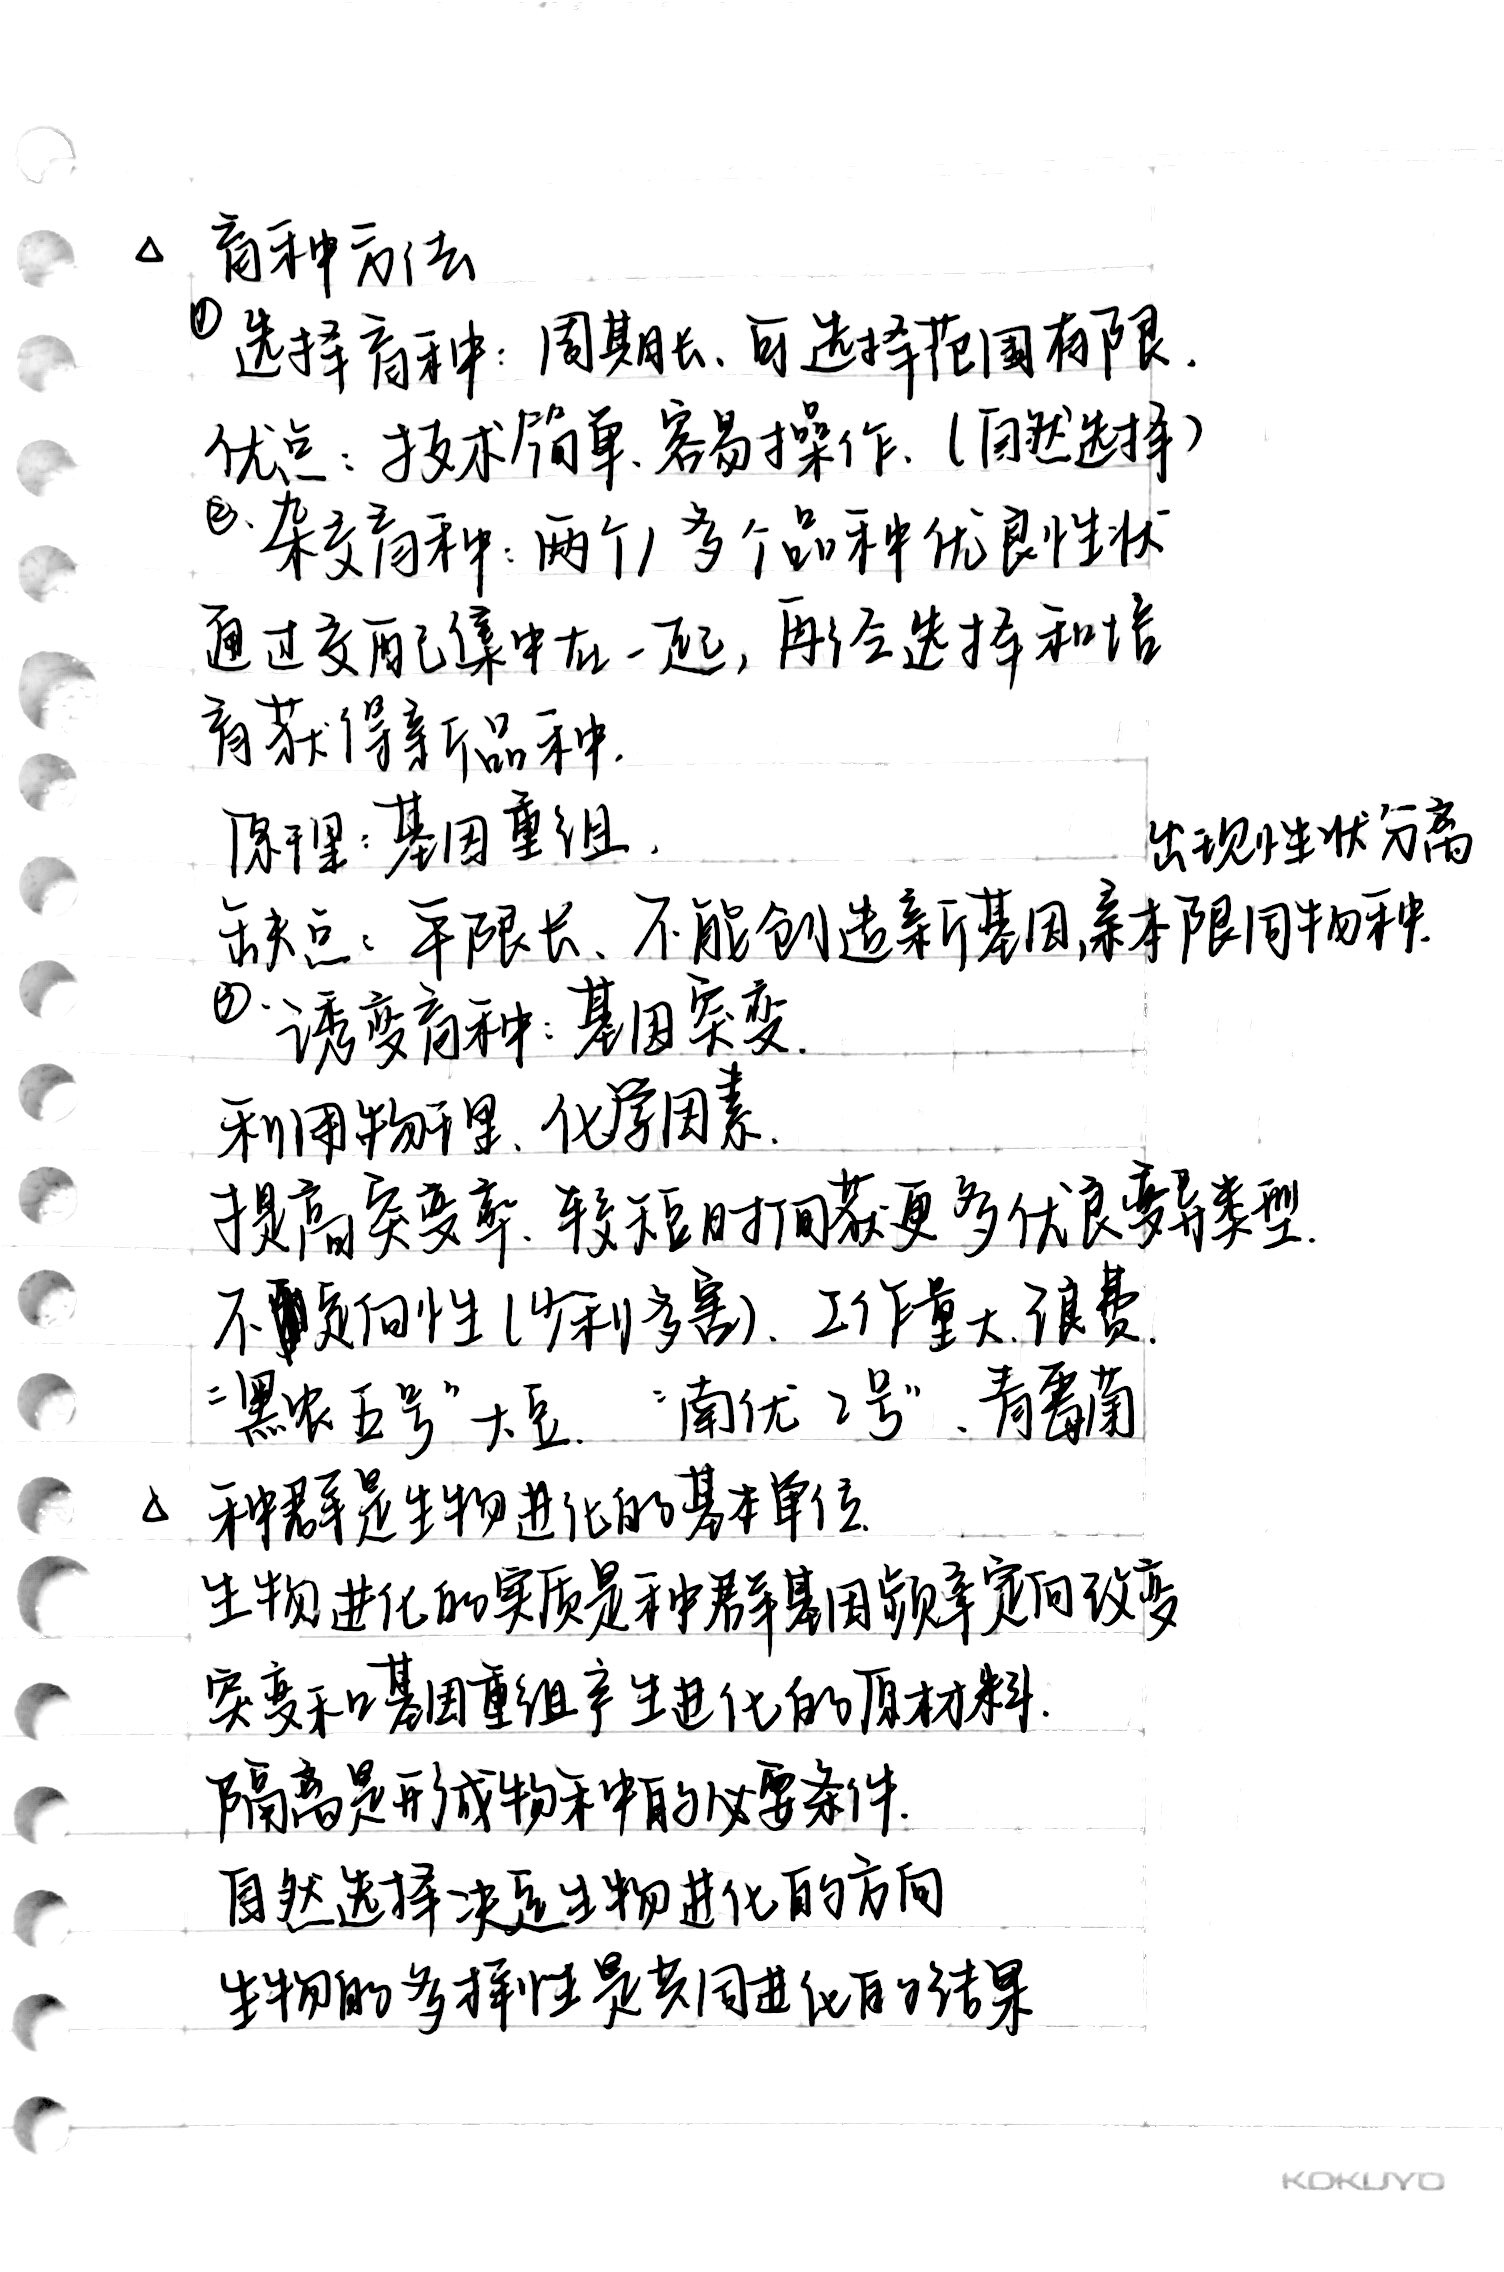 △ 育种方法
① 选择育种：周期长、可选择范围有限.
优点：技术简单、容易操作.（自然选择）
②. 杂交育种：两个/多个品种优良性状
通过交配集中在一起，再经选择和培
育获得新品种.
原理：基因重组.
出现性状分离
缺点：年限长、不能创造新基因,亲本限同物种.
③. 诱变育种：基因突变.
利用物理、化学因素.
提高突变率、较短时间获更多优良变异类型.
不定向性(少利多害)、工作量大.浪费.
“黑农五号”大豆. “南优2号”、青霉菌
△ 种群是生物进化的基本单位.
生物进化的实质是种群基因频率定向改变
突变和基因重组产生进化的原材料.
隔离是形成物种的必要条件.
自然选择决定生物进化的方向
生物的多样性是共同进化的结果
KOKUYO